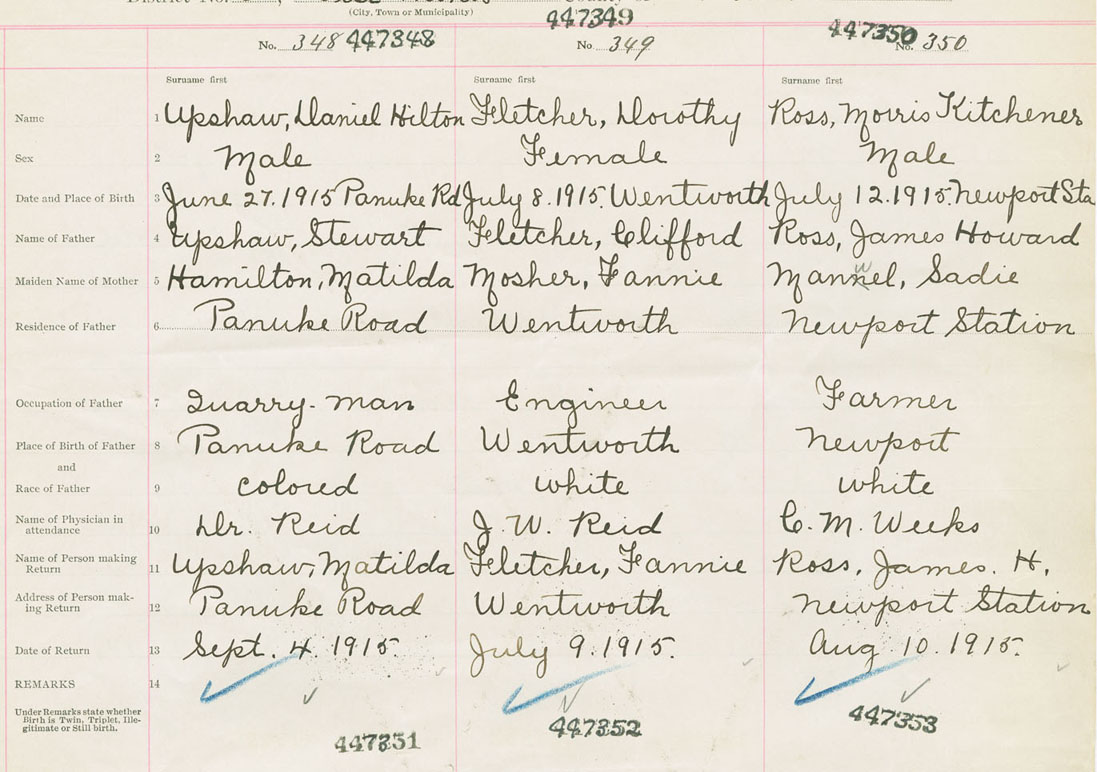 District No.
(City, Town or Municipality)
447349
No. 348 447348 No 349 447350 No. 350
Surname first Surname first Surname first
Name 1 Upshaw, Daniel Hilton Fletcher, Dorothy Ross, Morris Kitchener
Sex 2 Male Female Male
Date and Place of Birth 3 June 27. 1915 Panuke Rd July 8. 1915. Wentworth July 12. 1915. Newport Sta
Name of Father 4 Upshaw, Stewart Fletcher, Clifford Ross, James Howard
Maiden Name of Mother 5 Hamilton, Matilda Mosher, Fannie Sadie
Residence of Father 6 Panuke Road Wentworth Newport Station
Occupation of Father 7 Quarry-man Engineer Farmer
Place of Birth of Father 8 Panuke Road Wentworth Newport
and
Race of Father 9 colored white white
Name of Physician in
attendance 10 Dr. Reid J. W. Reid C. M. Weeks
Name of Person making
Return 11 Upshaw, Matilda Fletcher, Fannie Ross, James. H.
Address of Person mak-
ing Return 12 Panuke Road Wentworth Newport Station
Date of Return 13 Sept. 4. 1915 July 9. 1915. Aug 10. 1915.
REMARKS 14
Under Remarks state whether
Birth is Twin, Triplet, Ille-
gitimate or Still birth.
447351 447352 447353